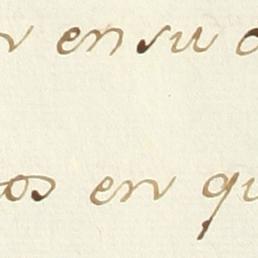 en su
os en qu